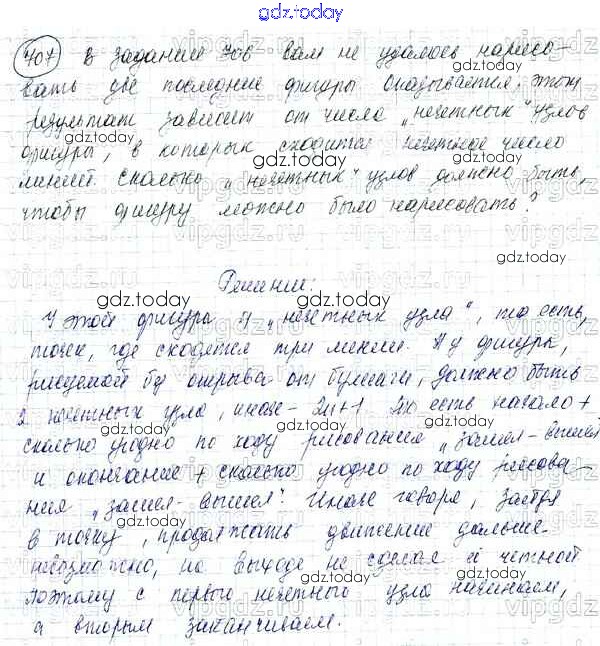 gdz.today
407 В задании 306 вам не удалось нарисо-
вать две последние фигуры Оказывается, этот
результат зависит от числа „нечетных" узлов
фигуры, в которых сходится нечетное число
линий. Сколько „нечетных" узлов должно быть,
чтобы фигуру можно было нарисовать?
Решение:
У этой фигуры 4 „нечетных узла", то есть,
точек, где сходятся три линии. А у фигуры,
рисуемой без отрыва от бумаги, должно быть
2 нечетных узла, иначе - 2n+1. То есть начало +
сколько угодно по ходу рисования „зашел-вышел
и окончание + сколько угодно по ходу рисова-
ния „зашел-вышел". Иначе говоря, зайдя
в точку, продолжать движение дальше
невозможно, но выходе не сделая и четной
Поэтому с первого нечетного узла начинаем,
а вторым заканчиваем.